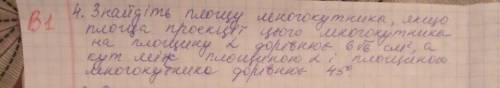 В1
4. Знайдіть площу многокутника, якщо
площа проєкції цього многокутника
на площину α дорівнює 6√2 см², а
кут між площиною α і площиною
многокутника дорівнює 45°